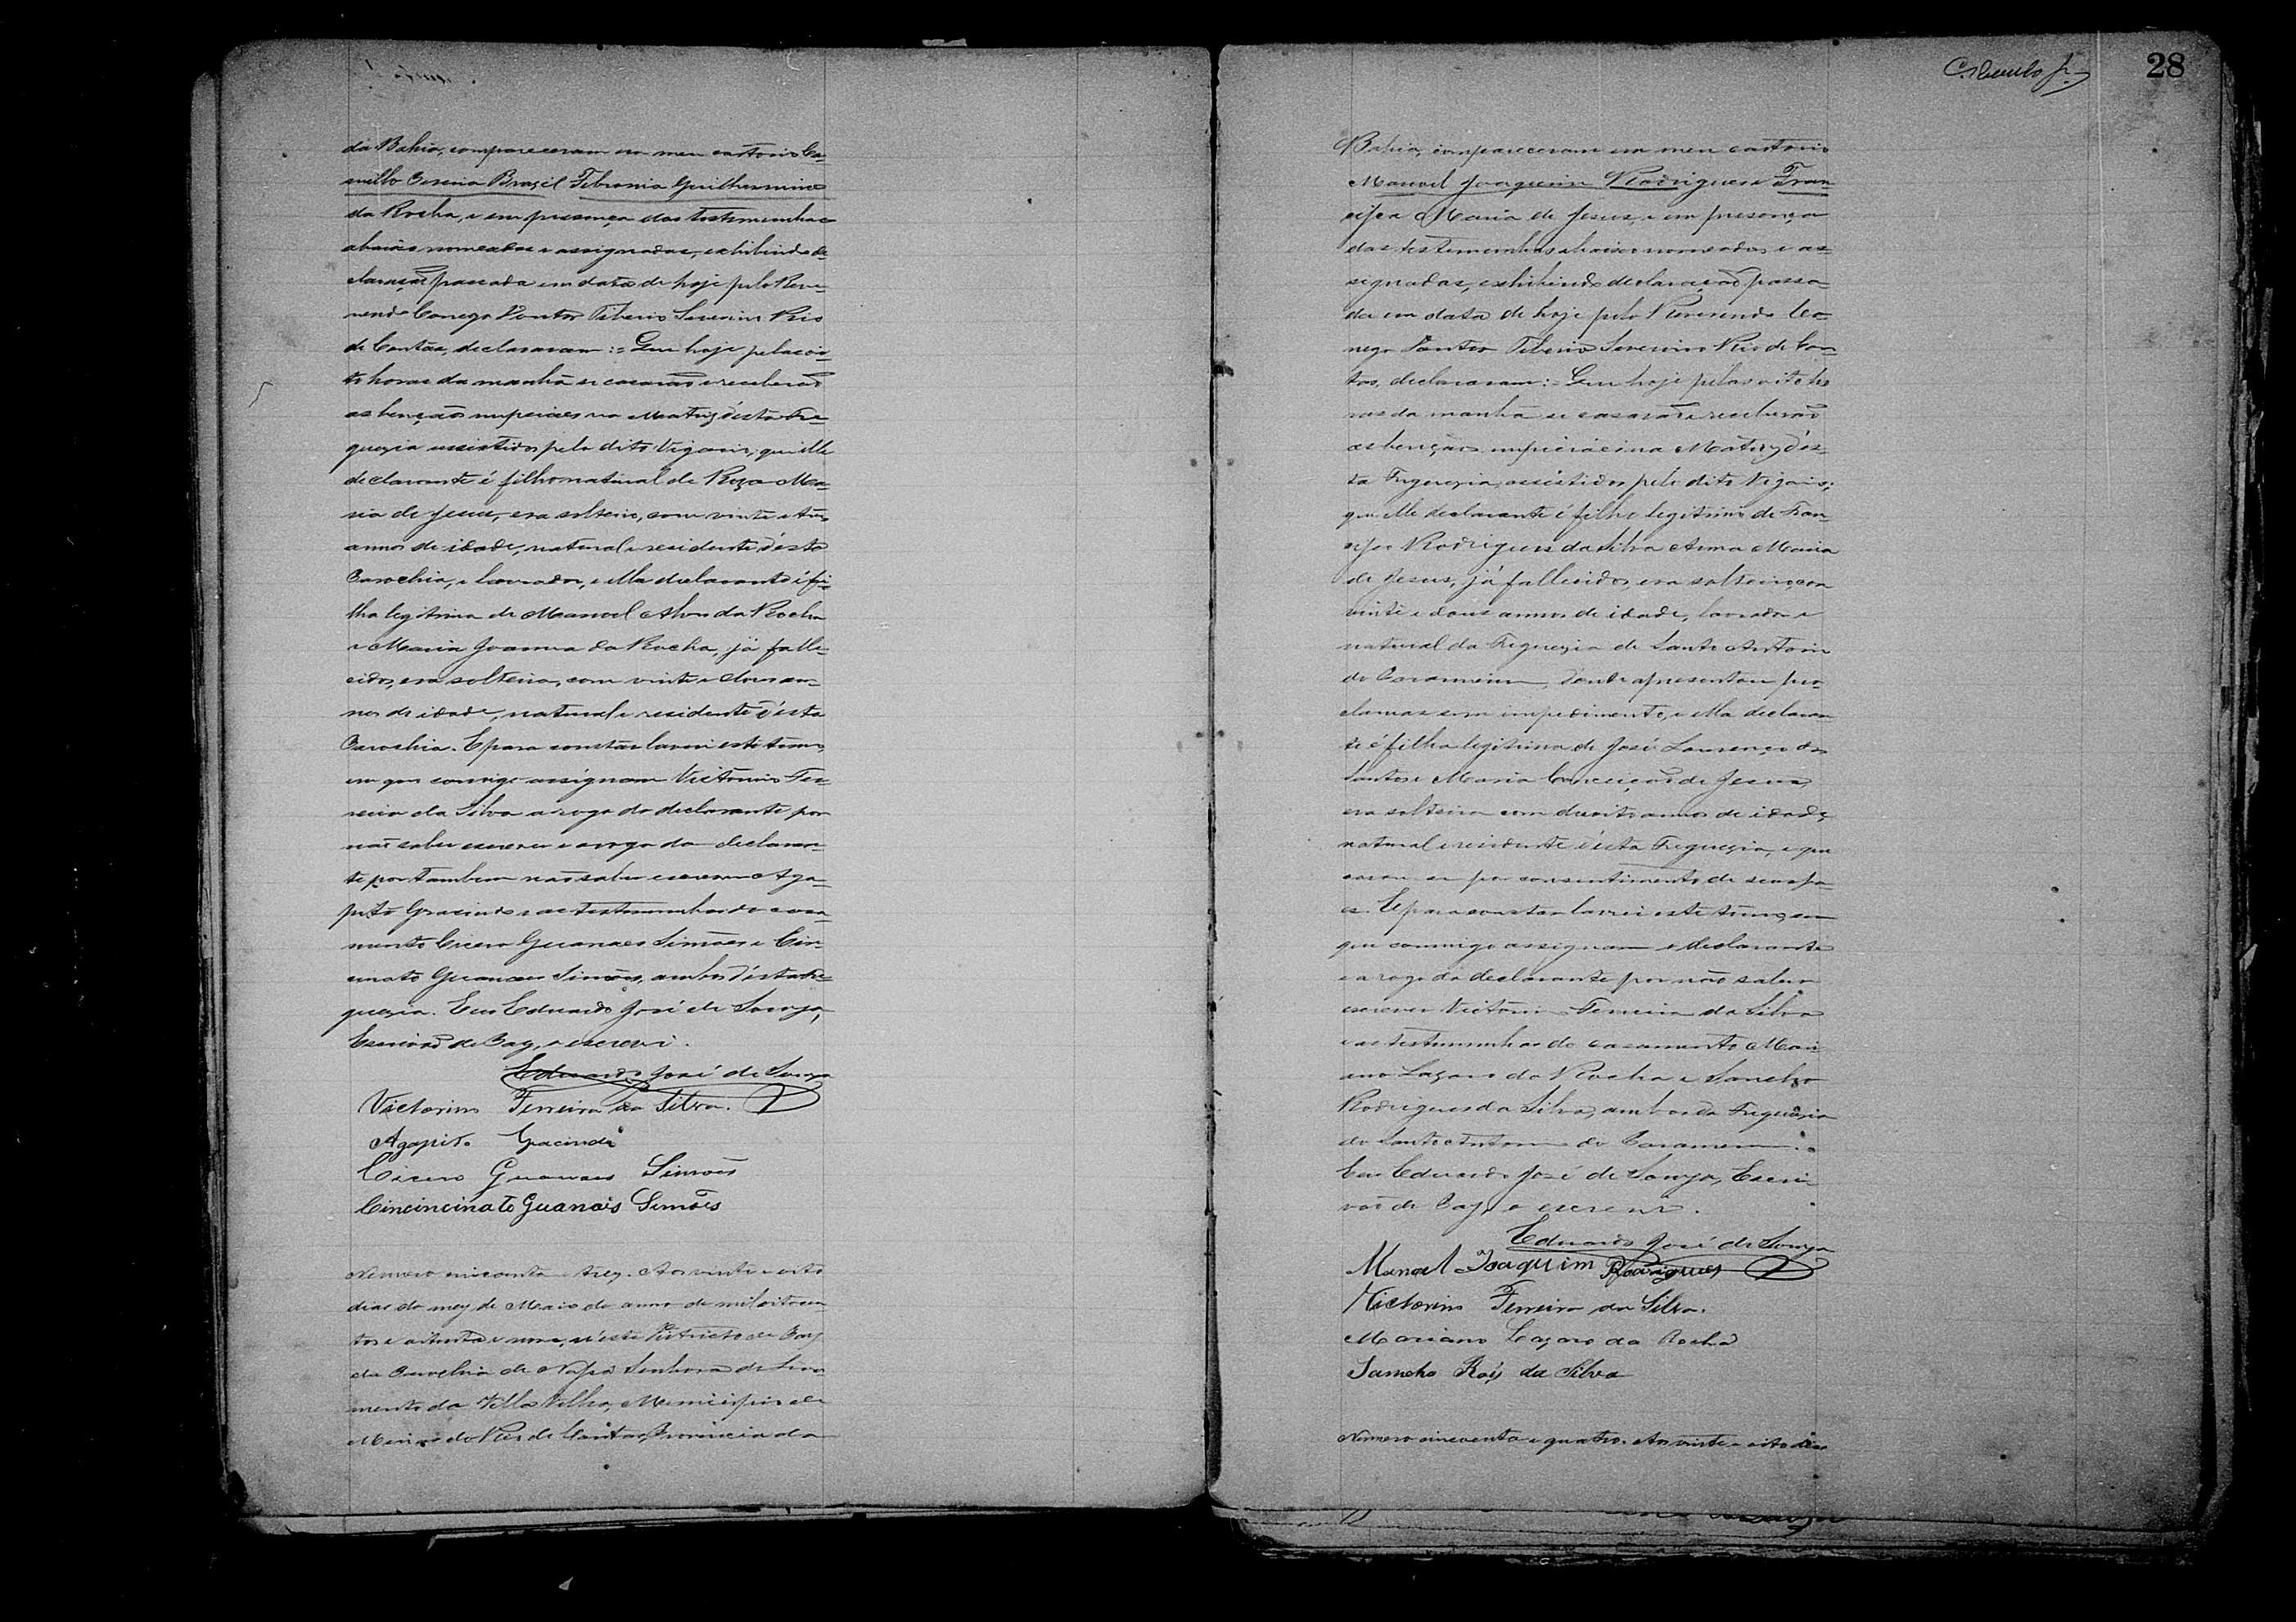 da Bahia, compareceram em meu cartorio Ca-
millo Pereira Brazil Febronia Guilhermina
da Rocha, e em presença das testemunhas
abaixo nomeadas e assignadas, exhibindo de-
claração passada em data de hoje pelo Reve-
rendo Conego Doutor Tiberio Severino Rio
de Contas, declararam := Que hoje pelas oi-
to horas da manhã se casarão e receberão
as bençãos nupciaes na Matriz d'esta Fre-
guezia assistidos pelo dito Vigario, que elle
declarante é filho natural de Roza Ma-
ria de Jesus, era solteiro, com vinte e tres
annos de idade, natural e residente n'esta
Parochia, e lavrador, e ella declarante é fi-
lha legitima de Manoel Alves da Rocha
e Maria Joanna da Rocha, já falle-
cidos, era solteira, com vinte e dous an-
nos de idade, natural e residente n'esta
Parochia. E para constar lavrei este termo,
em que comigo assignam Victorino Fer-
reira da Silva a rogo do declarante por
não saber escrever e a rogo da declaran-
te por tambem não saber escrever Aga-
pito Gracindo e as testemunhas do casa-
mento Cicero Guanaes Simões e Cin-
cinato Guanaes Simões, ambos d'esta Fre-
guezia. Eu Eduardo José de Souza,
Escrivão de Paz, o escrevi.
Eduardo José de Souza
Victorino Ferreira da Silva.
Agapito Gracindo
Cicero Guanaes Simões
Cincincinato Guanais Simões
Numero cincoenta e trez. Aos vinte e oito
dias do mez de Maio do anno de mil oitocen-
tos e oitenta e nove, n'este Districto de Paz
da Parochia de Nossa Senhora do Livra-
mento da Villa Velha, Municipio de
Minas do Rio de Contas, Provincia da
28
Bahia, compareceram em meu cartorio
Manoel Joaquim Rodrigues e Fran-
cisca Maria de Jesus, e em presença
das testemunhas abaixo nomeadas e as-
signadas, exhibindo declaração passa-
da em data de hoje pelo Reverendo Co-
nego Doutor Tiberio Severino Rio de Con-
tas, declararam := Que hoje pelas oito ho
ras da manhã se casarão e receberão
as bençãos nupciaes na Matriz d'es-
ta Freguezia, assistidos pelo dito Vigario;
que elle declarante é filho legitimo de Fran-
cisco Rodrigues da Silva e Anna Maria
de Jesus, já fallecidos, era solteiro, com
vinte e dous annos de idade, lavrador e
natural da Freguezia de Santo Antonio
do Paramerim, d'onde apresentou pro-
clamas sem impedimento, e ella declaran-
te é filha legitima de José Lourenço dos
Santos e Maria Conceição de Jesus,
era solteira com dezoito annos de idade,
natural e residente n'esta Freguezia, e que
casou-se por consentimento de seus pa-
es. E para constar lavrei este termo, em
que commigo assignam o declarante
e a rogo da declarante por não saber
escrever Victorino Ferreira da Silva
e as testemunhas do casamento Mari-
ano Lazaro da Rocha e Sancho
Rodrigues da Silva, ambos da Freguezia
de Santo Antonio do Paramerim.
Eu Eduardo José de Souza, Escri-
vão de Paz, o escrevi.
Eduardo José de Souza
Manoel Joaquim Rodrigues
Victorino Ferreira da Silva.
Mariano Lazaro da Rocha
Sancho Roiz da Silva
Numero cincoenta e quatro. Aos vinte e oito dias